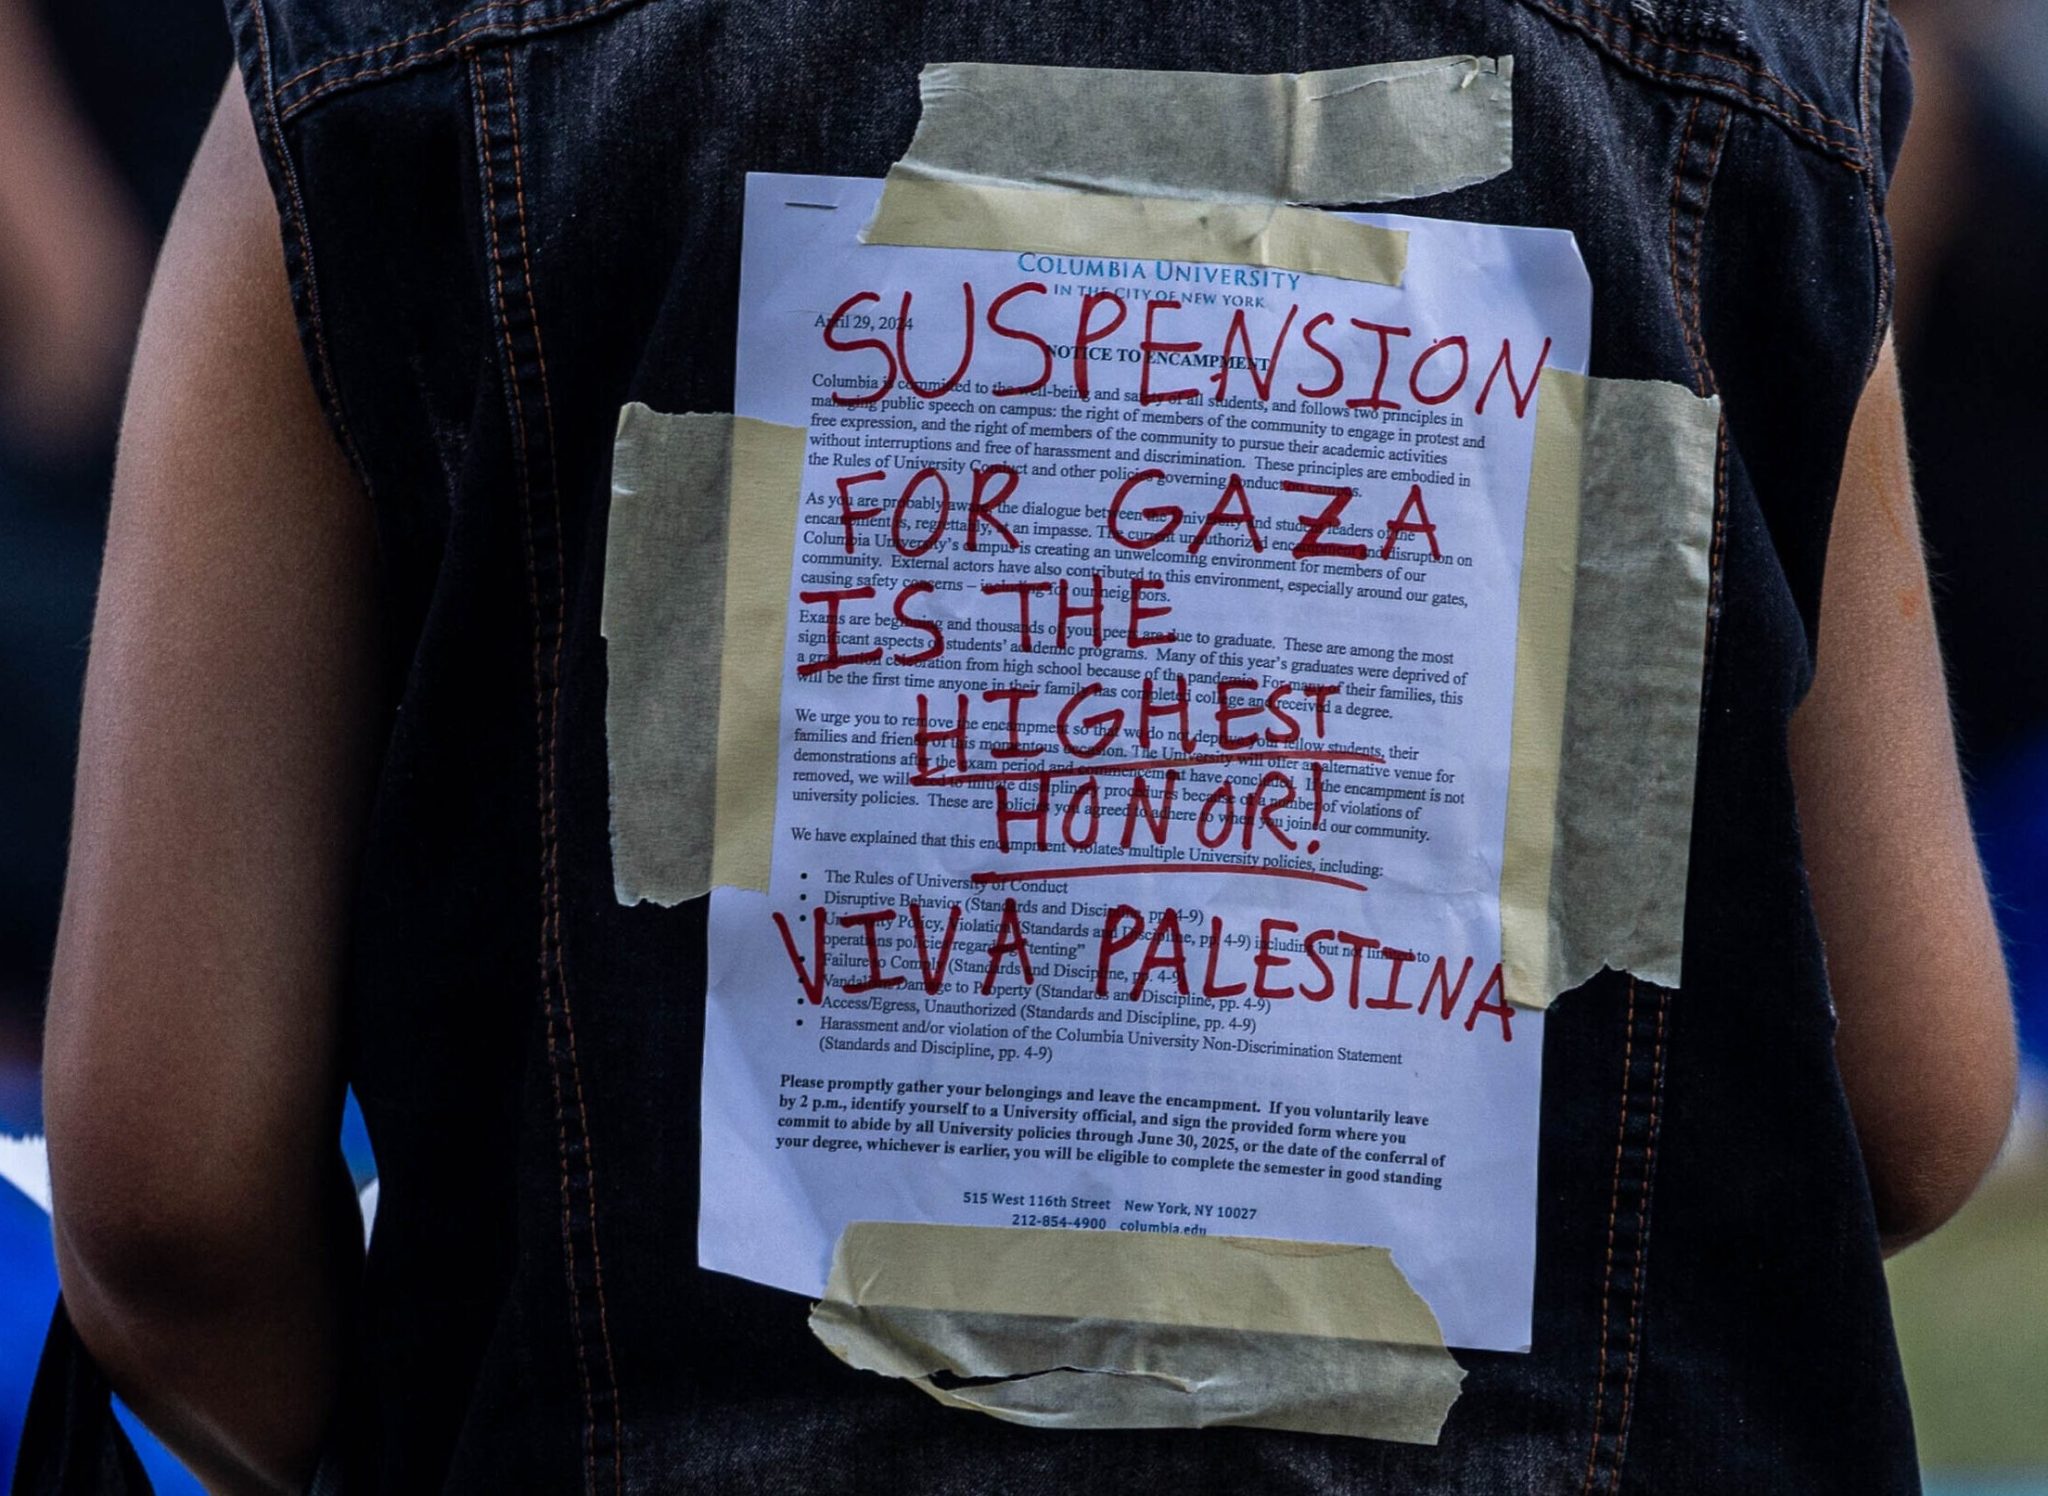 COLUMBIA UNIVERSITY
IN THE CITY OF NEW YORK
April 29, 2024
SUSPENSION
NOTICE TO ENCAMPMENT
Columbia is committed to the well-being and safety of all students, and follows two principles in
managing public speech on campus: the right of members of the community to engage in protest and
free expression, and the right of members of the community to pursue their academic activities
without interruptions and free of harassment and discrimination. These principles are embodied in
the Rules of University Conduct and other policies governing conduct on campus.
FOR GAZA
As you are probably aware, the dialogue between the University and student leaders of the
encampment is, regrettably, at an impasse. The current unauthorized encampment and disruption on
Columbia University's campus is creating an unwelcoming environment for members of our
community. External actors have also contributed to this environment, especially around our gates,
causing safety concerns – including for our neighbors.
IS THE
Exams are beginning and thousands of your peers are due to graduate. These are among the most
significant aspects of students' academic programs. Many of this year's graduates were deprived of
a graduation celebration from high school because of the pandemic. For many of their families, this
will be the first time anyone in their family has completed college and received a degree.
HIGHEST
We urge you to remove the encampment so that we do not deprive your fellow students, their
families and friends of this momentous occasion. The University will offer an alternative venue for
demonstrations after the exam period and commencement have concluded. If the encampment is not
removed, we will need to initiate disciplinary procedures because of a number of violations of
university policies. These are policies you agreed to adhere to when you joined our community.
HONOR!
We have explained that this encampment violates multiple University policies, including:
• The Rules of University of Conduct
• Disruptive Behavior (Standards and Discipline, pp. 4-9)
VIVA PALESTINA
• University Policy, Violation (Standards and Discipline, pp. 4-9) including but not limited to
operations policies regarding "tenting"
• Failure to Comply (Standards and Discipline, pp. 4-9)
• Vandalism/Damage to Property (Standards and Discipline, pp. 4-9)
• Access/Egress, Unauthorized (Standards and Discipline, pp. 4-9)
• Harassment and/or violation of the Columbia University Non-Discrimination Statement
(Standards and Discipline, pp. 4-9)
Please promptly gather your belongings and leave the encampment. If you voluntarily leave
by 2 p.m., identify yourself to a University official, and sign the provided form where you
commit to abide by all University policies through June 30, 2025, or the date of the conferral of
your degree, whichever is earlier, you will be eligible to complete the semester in good standing
515 West 116th Street New York, NY 10027
212-854-4900 columbia.edu